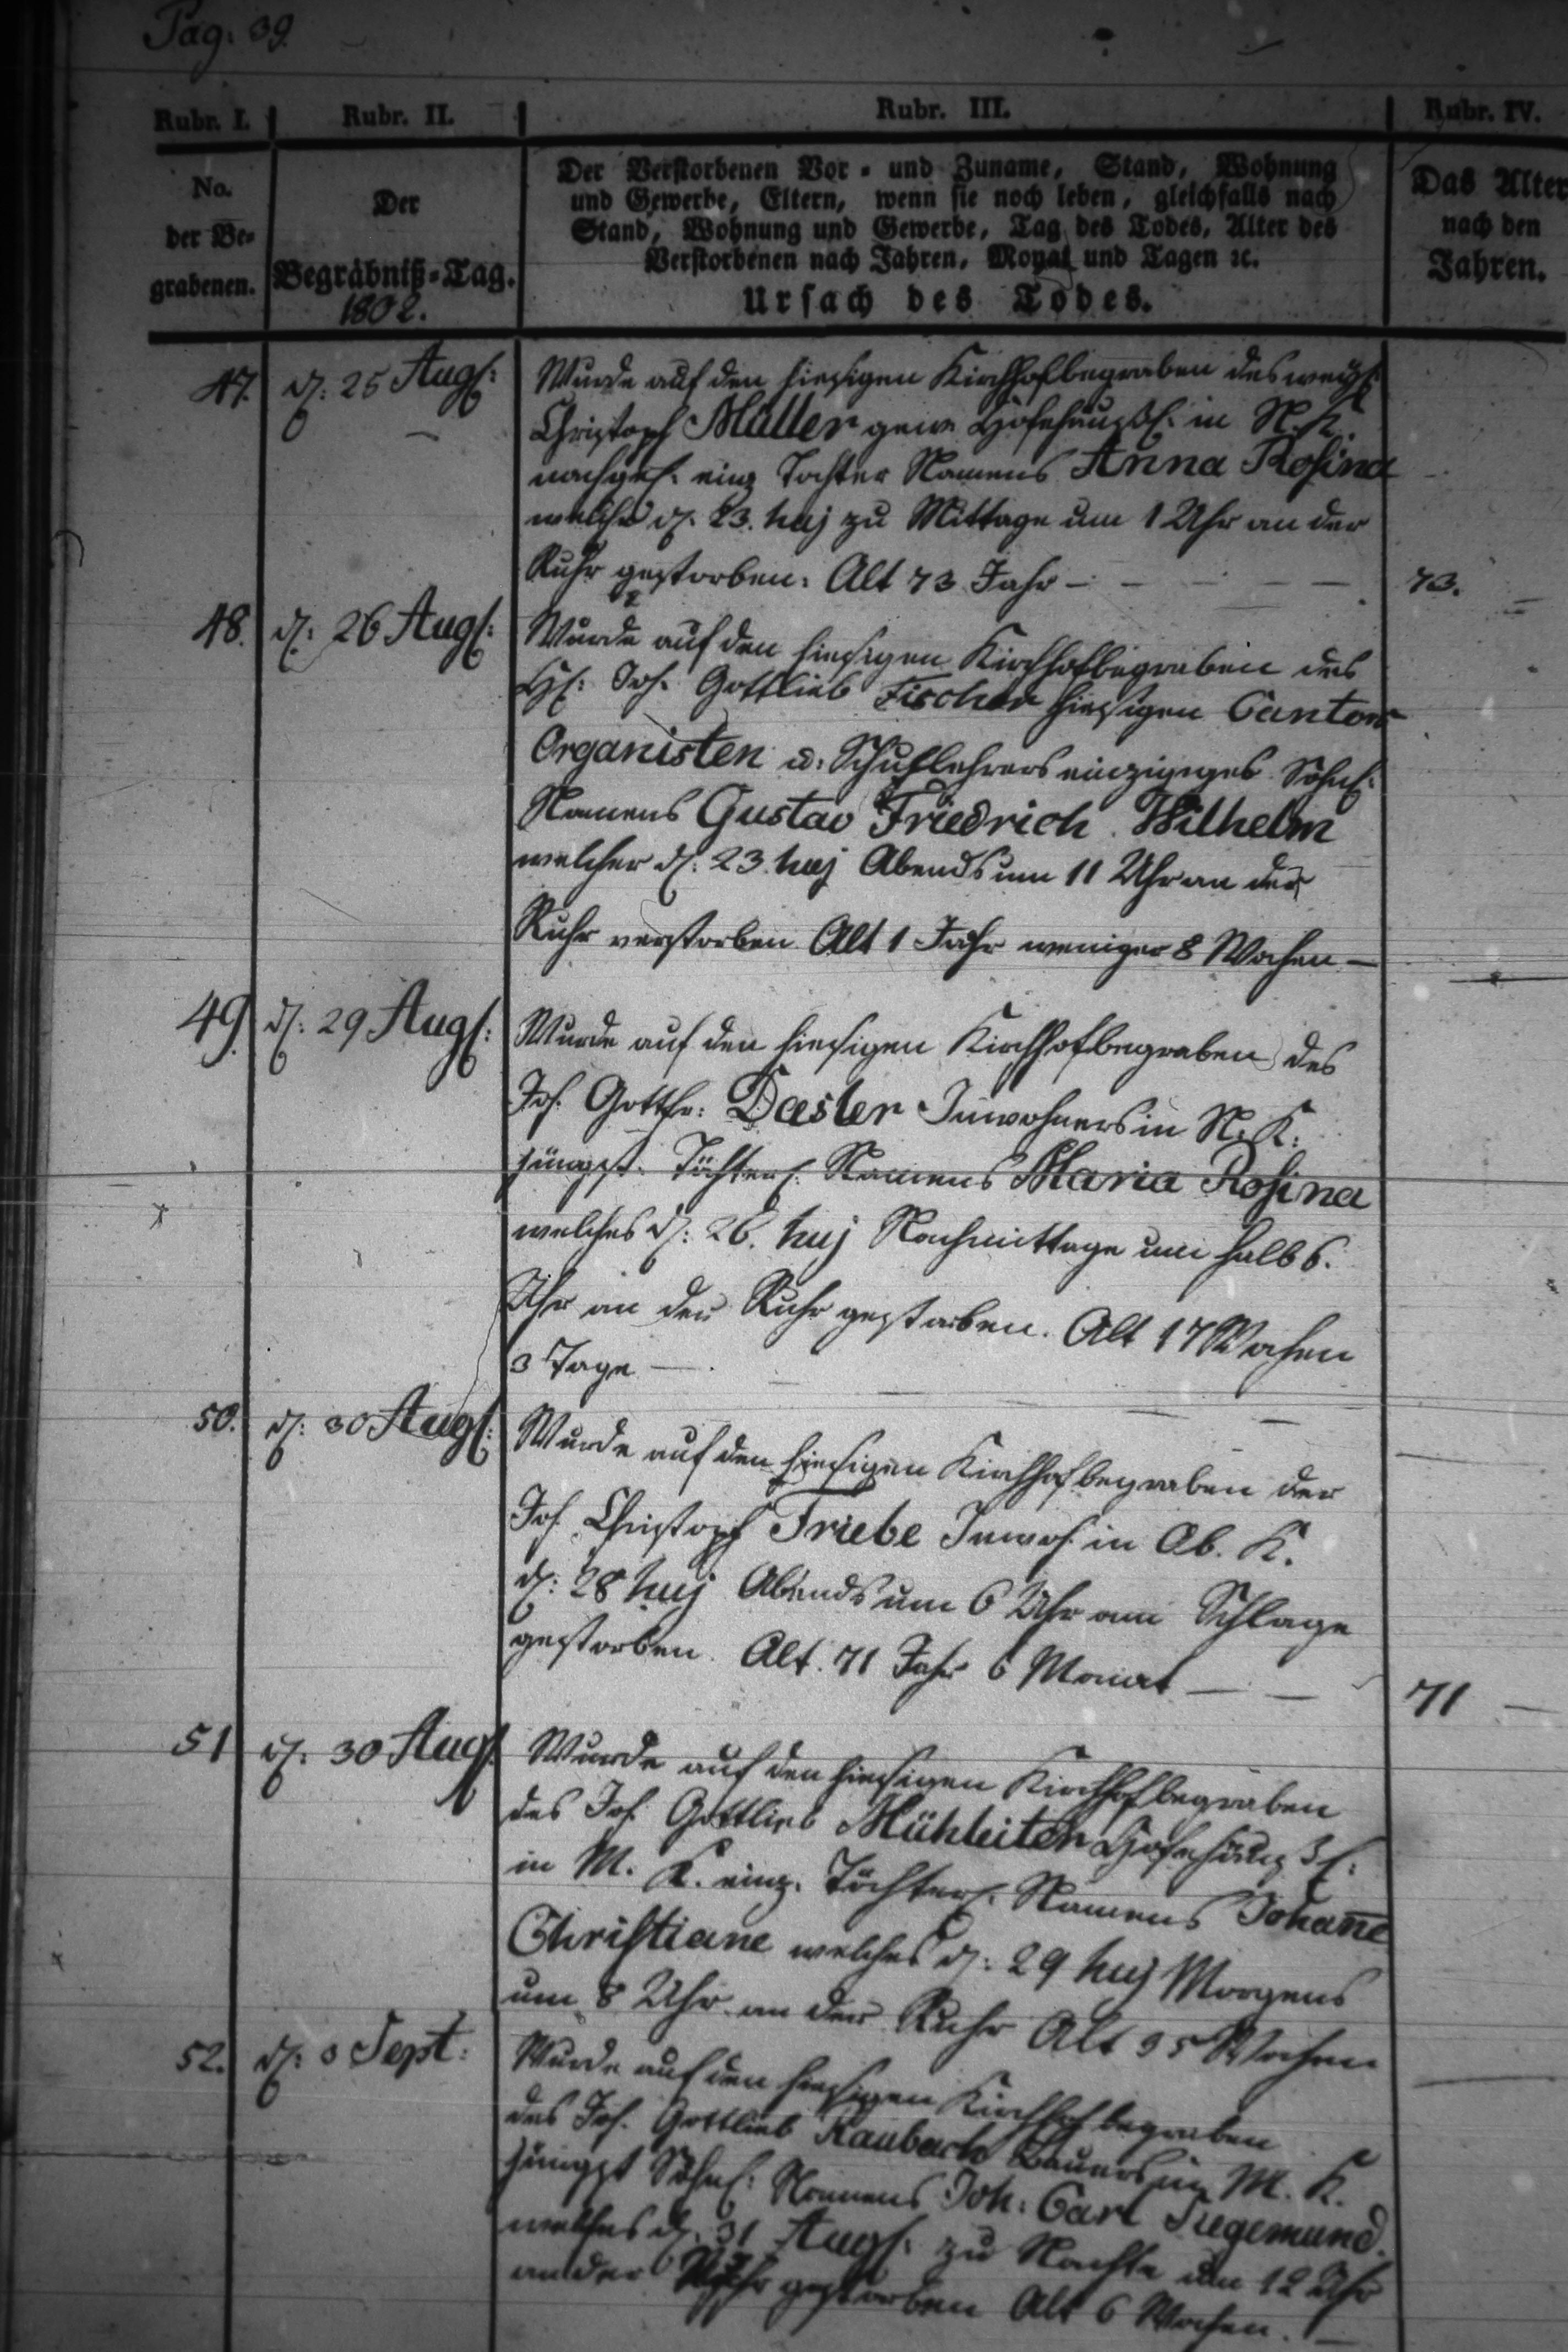 Pag: 39.
Rubr. I. Rubr. II. Rubr. III. Rubr. IV.
No. der Be-grabenen.
Der Begräbniß-Tag. 1802.
Der Verstorbenen Vor- und Zuname, Stand, Wohnung
und Gewerbe, Eltern, wenn sie noch leben, gleichfalls nach
Stand, Wohnung und Gewerbe, Tag des Todes, Alter des
Verstorbenen nach Jahren, Monat und Tagen ꝛc.
Ursach des Todes.
Das Alter
nach den
Jahren.
47. d. 25 Augs: Wurde auf den hiesigen Kirchhof begraben des weyl:
Christoph Müller gew. Hofehäusl: in N. K.
nachgel. einz Tochter Namens Anna Rosina
welche d. 23. huj zu Mittage um 1 Uhr an der
Ruhr gestorben. Alt 73 Jahr — 73.
48. d: 26 Augs: Wurde auf den hiesigen Kirchhof begraben des
H: Joh. Gottlieb Fischer hiesigen Cantors
Organisten u: Schullehrers einzigiges Söhnl:
Namens Gustav Friedrich Wilhelm
welcher d: 23 huj Abends um 11 Uhr an der
Ruhr verstorben Alt 1 Jahr weniger 8 Wochen —
49. d: 29 Augs: Wurde auf den hiesigen Kirchhof begraben des
Joh. Gottfr: Dasler Inwohners in N. K.
jüngst. Töchterl: Namens Maria Rosina
welches d: 26. huj Nachmittage um halb 6.
Uhr an der Ruhr gestorben. Alt 17 Wochen
3 Tage —
50. d: 30 Augs: Wurde auf den hiesigen Kirchhof begraben der
Joh. Christoph Triebe Inwoh. in Ob. K.
d: 28 huj Abends um 6 Uhr am Schlage
gestorben. Alt. 71 Jahr 6 Monat — 71 —
51 d: 30 Augs Wurde auf den hiesigen Kirchhof begraben
des Joh. Gottlieb Mühleiten Hofehäusl:
in M. K. einz. Töchterl. Namens Johane
Christiane welches d: 29 huj Morgens
um 8 Uhr an der Ruhr Alt 35 Wochen
52. d: 3 Sept: Wurde auf den hiesigen Kirchhof begraben
des Joh. Gottlieb Raubach Bauers in M. K.
jüngst Söhnl: Namens Joh: Carl Siegemund.
welches d. 31 Augs: zu Nachts um 12 Uhr
an der Ruhr gestorben Alt 6 Wochen. —